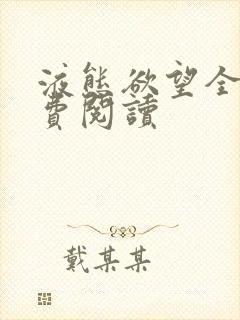 液態欲望全
費閱讀
戴某某